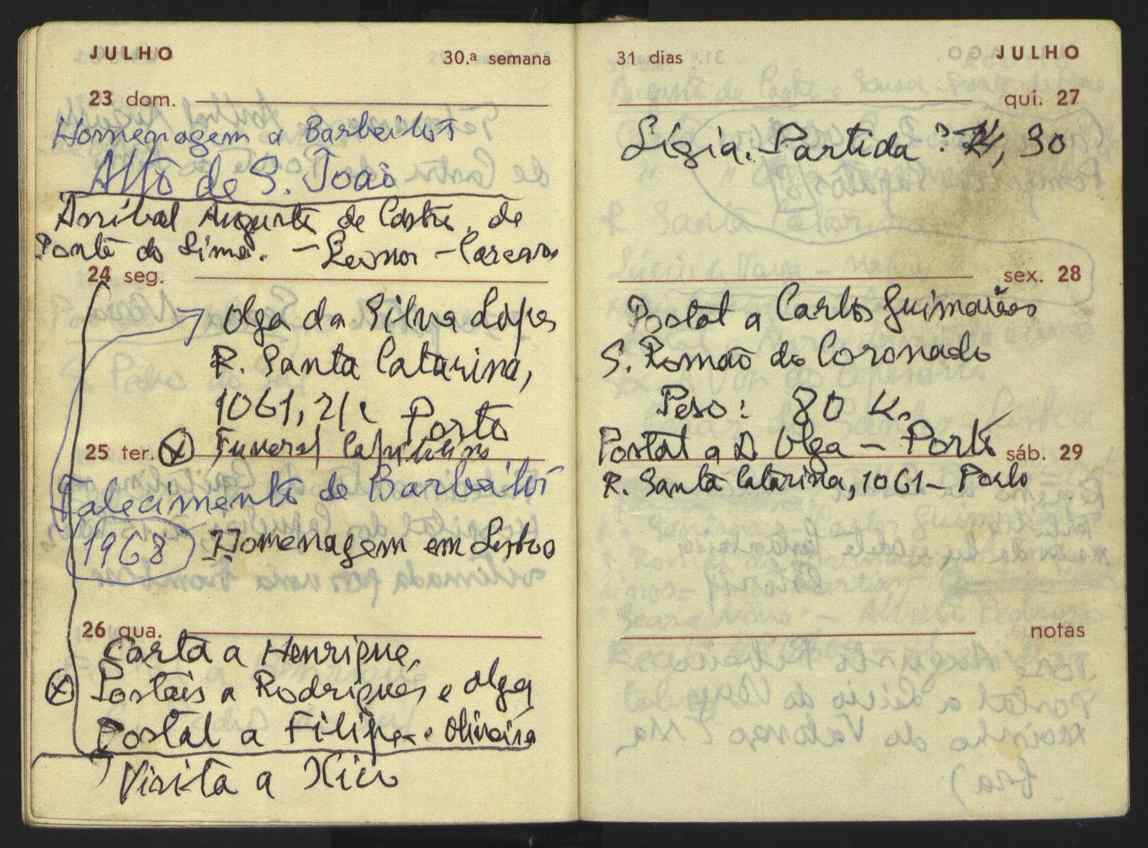 JULHO 30.ª semana
23 dom.
Homenagem a Barbeitos
Alto de S. João
Aníbal Augusto de Castro, de
Ponte do Lima. – Leonor – Carcavos
24 seg.
Olga da Silva Lopes
R. Santa Catarina,
1061, 2/c Porto
25 ter. Funeral Capitolina
Falecimento de Barbeitos
1968 Homenagem em Lisboa
26 qua.
Carta a Henrique,
Postais a Rodrigues e Olga
Postal a Filipe e Oliveira
Visita a Xico
31 dias JULHO
qui. 27
Lígia. Partida? 30
sex. 28
Postal a Carlos Guimarães
S. Romão do Coronado
Peso: 80 K.
Postal a D. Olga – Porto
sáb. 29
R. Santa Catarina, 1061 – Porto
notas